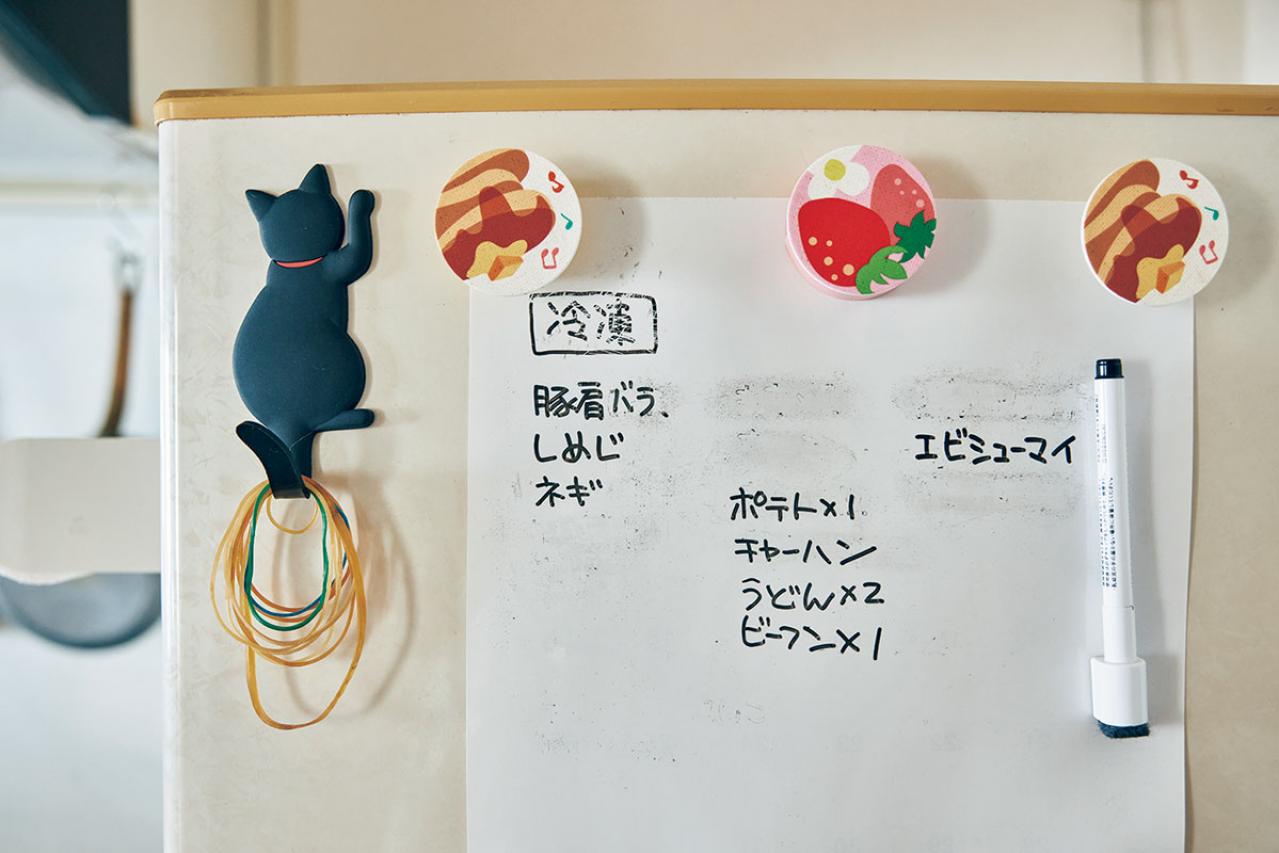 冷凍
豚肩バラ、
しめじ
ネギ
ポテト×1
チャーハン
うどん×2
ビーフン×1
エビシューマイ